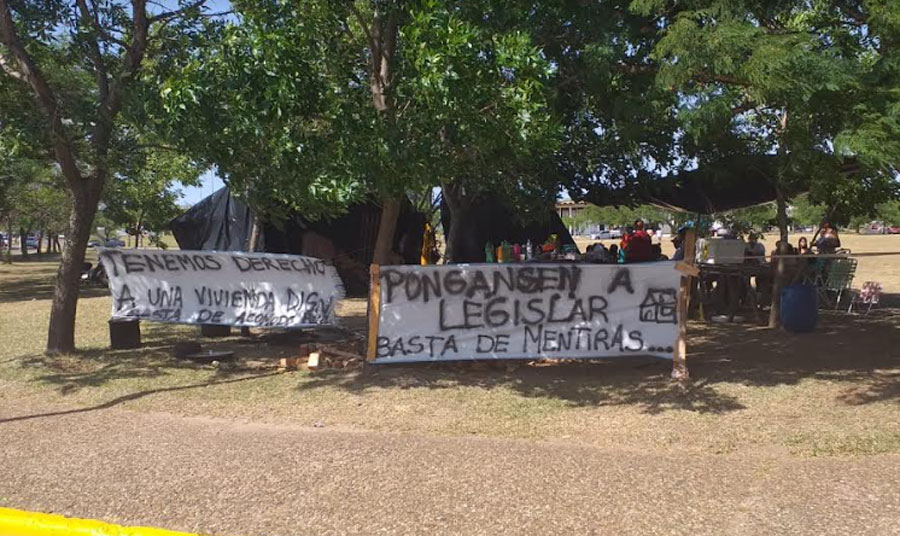 TENEMOS DERECHO
A UNA VIVIENDA DIGN
BASTA DE
PONGANSEN A
LEGISLAR
BASTA DE MENTIRAS...